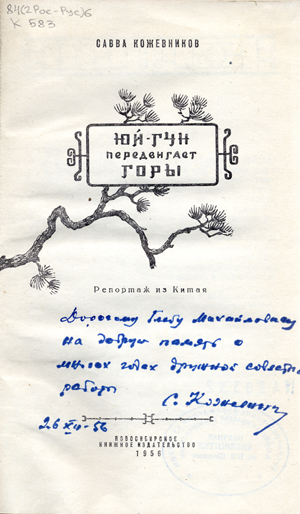 84(2Рос-Рус)6
К 583
САВВА КОЖЕВНИКОВ
ЮЙ-ГУН
ПЕРЕДВИГАЕТ
ГОРЫ
Репортаж из Китая
Дорогому Глебу Михайловичу
на добрую память о
многих годах дружной совместн
работы
С. Кожевник
26 XII-56
НОВОСИБИРСКОЕ
КНИЖНОЕ ИЗДАТЕЛЬСТВО
1956